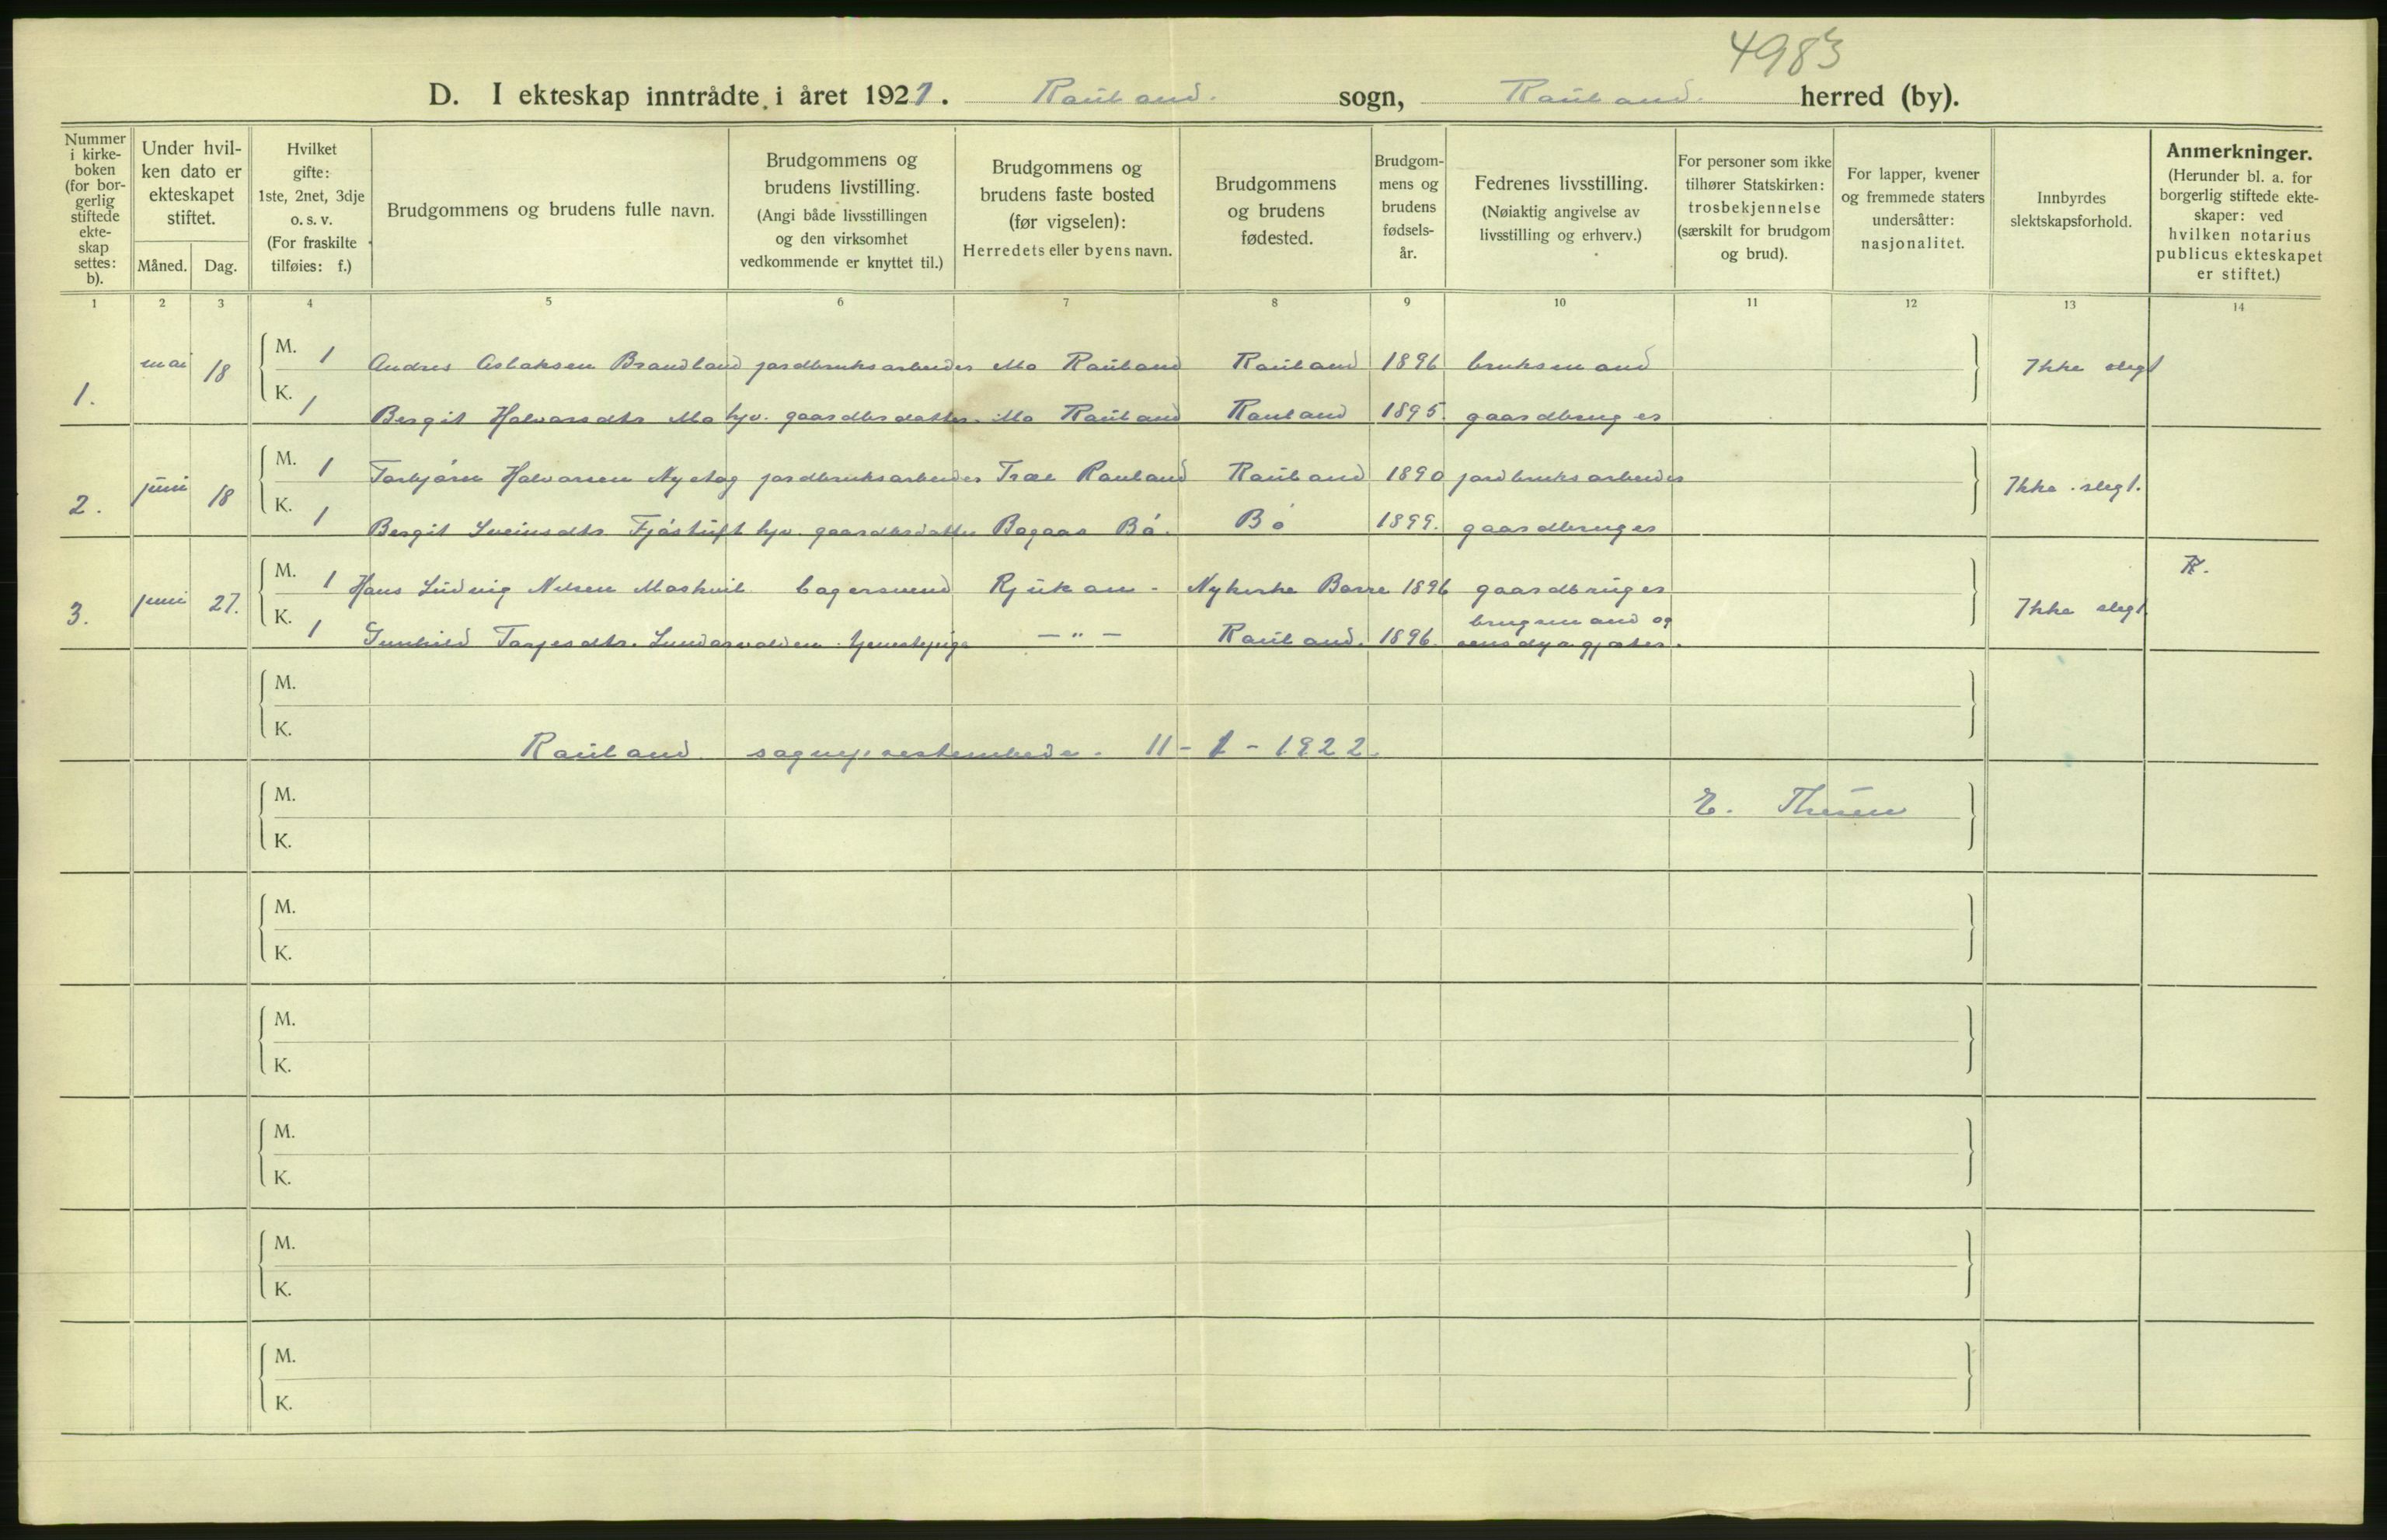 4983
D. I ekteskap inntrådte i året 1921. Rauland. sogn, Rauland. herred (by).
Nummer i kirke-boken (for bor-gerlig stiftede ekte-skap settes: b).
Under hvil-ken dato er ekteskapet stiftet.
Måned. Dag.
Hvilket gifte: 1ste, 2net, 3dje o. s. v. (For fraskilte tilføies: f.)
Brudgommens og brudens fulle navn.
Brudgommens og brudens livstilling. (Angi både livsstillingen og den virksomhet vedkommende er knyttet til.)
Brudgommens og brudens faste bosted (før vigselen): Herredets eller byens navn.
Brudgommens og brudens fødested.
Brudgom-mens og brudens fødsels-år.
Fedrenes livsstilling. (Nøiaktig angivelse av livsstilling og erhverv.)
For personer som ikke tilhører Statskirken: trosbekjennelse (særskilt for brudgom og brud).
For lapper, kvener og fremmede staters undersåtter: nasjonalitet.
Innbyrdes slektskapsforhold.
Anmerkninger. (Herunder bl. a. for borgerlig stiftede ekte-skaper: ved hvilken notarius publicus ekteskapet er stiftet.)
1 2 3 4 5 6 7 8 9 10 11 12 13 14
1. mai 18 M. 1 Andres Aslaksen Brandland jordbruksarbeider Mo Rauland Rauland 1896 bruksmand Ikke slegt
K. 1 Bergit Halvorsdtr Mo hjv. gaardbrdatter Mo Rauland Rauland 1895. gaardbruger
2. juni 18 M. 1 Torbjørn Halvorsen Nyetog jordbruksarbeider Træe Rauland Rauland 1890 jordbruksarbeider Ikke slegt.
K. 1 Bergit Sveinsdtr Fjøstuft hjv. gaardbrdatter Bogaas Bø. Bø 1899. gaardbruger
3. juni 27. M. 1 Hans Ludvig Nilsen Moskvil bagersvend Rjukan - Nykirke Borre 1896 gaardbruger Ikke slegt R.
brugsmand og
K. 1 Gunhild Tarjesdtr. tjenestepige — " — Rauland. 1896.
M.
K.
Rauland sogneprestembede. 11 - 1 - 1922.
M. E. Thesen
K.
M.
K.
M.
K.
M.
K.
M.
K.
M.
K.